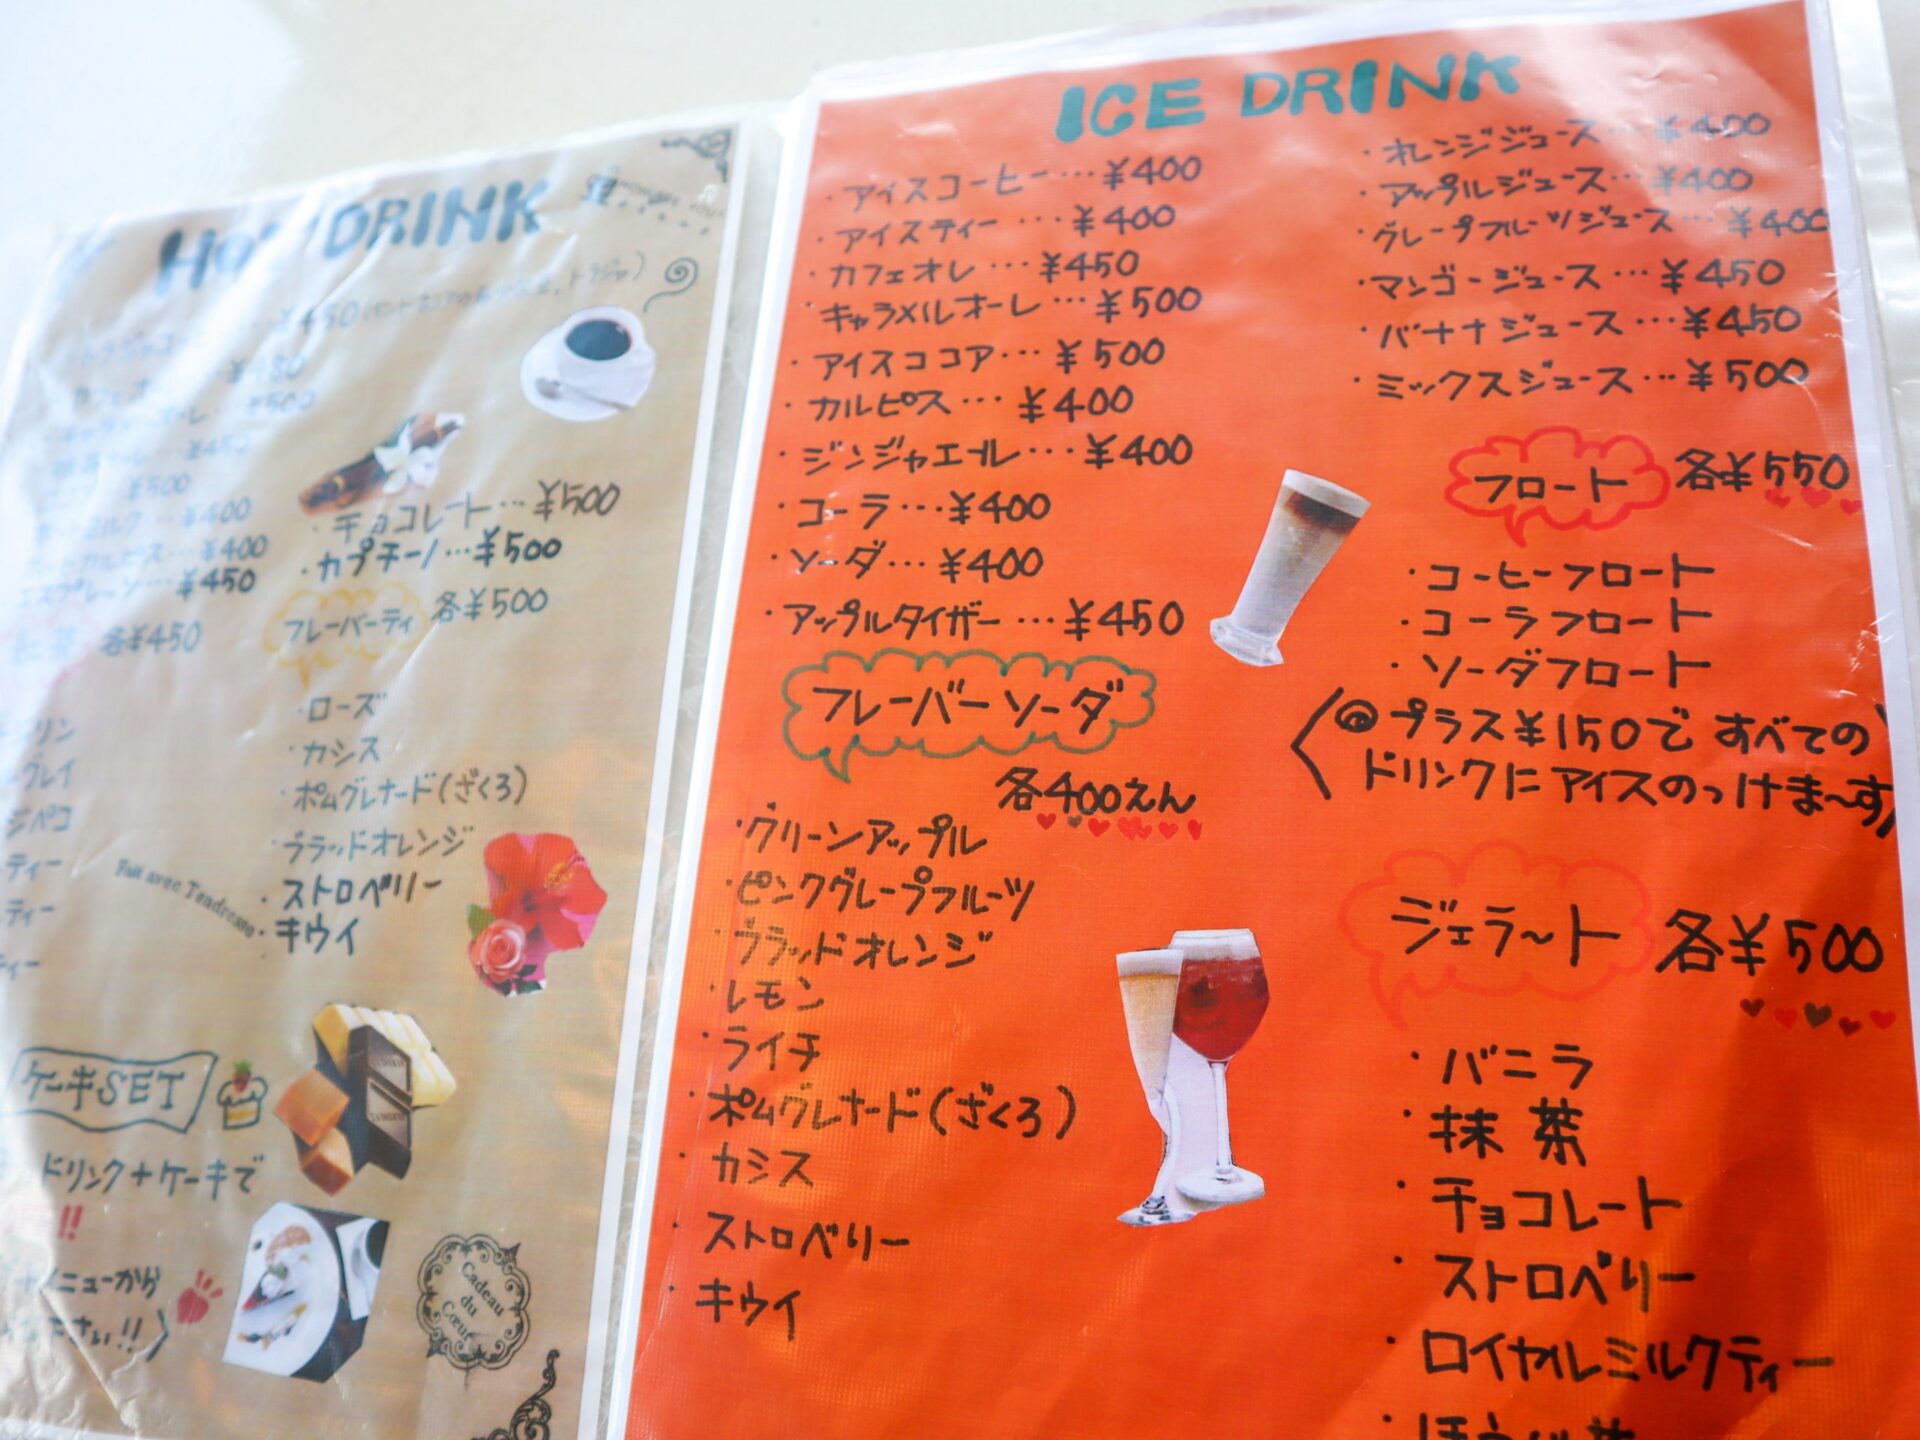 HOT DRINK
¥450
¥480
キャラメルオーレ…¥500
¥450
ココア ¥500
ホットミルク…¥400
ホットカルピス…¥400
エスプレッソ…¥450
紅茶 各¥450
ティー
ティー
ティー
・チョコレート…¥500
・カプチーノ…¥500
フレーバーティ 各¥500
・ローズ
・カシス
・ポムグレナード(ざくろ)
・ブラッドオレンジ
・ストロベリー
・キウイ
Fait avec Tendresse
ケーキSET
ドリンク+ケーキで
!!
メニューから
下さい!!
Cadeau
du
Cœur
ICE DRINK
・アイスコーヒー…¥400
・アイスティー…¥400
・カフェオレ…¥450
・キャラメルオーレ…¥500
・アイスココア…¥500
・カルピス…¥400
・ジンジャエール…¥400
・コーラ…¥400
・ソーダ…¥400
・アップルタイザー…¥450
フレーバーソーダ
各400えん
・グリーンアップル
・ピンクグレープフルーツ
・ブラッドオレンジ
・レモン
・ライチ
・ポムグレナード(ざくろ)
・カシス
・ストロベリー
・キウイ
・オレンジジュース…¥400
・アップルジュース…¥400
・グレープフルーツジュース…¥400
・マンゴージュース…¥450
・バナナジュース…¥450
・ミックスジュース…¥500
フロート 各¥550
・コーヒーフロート
・コーラフロート
・ソーダフロート
@プラス¥150ですべての
ドリンクにアイスのっけま〜す
ジェラ〜ト 各¥500
・バニラ
・抹茶
・チョコレート
・ストロベリー
・ロイヤルミルクティー